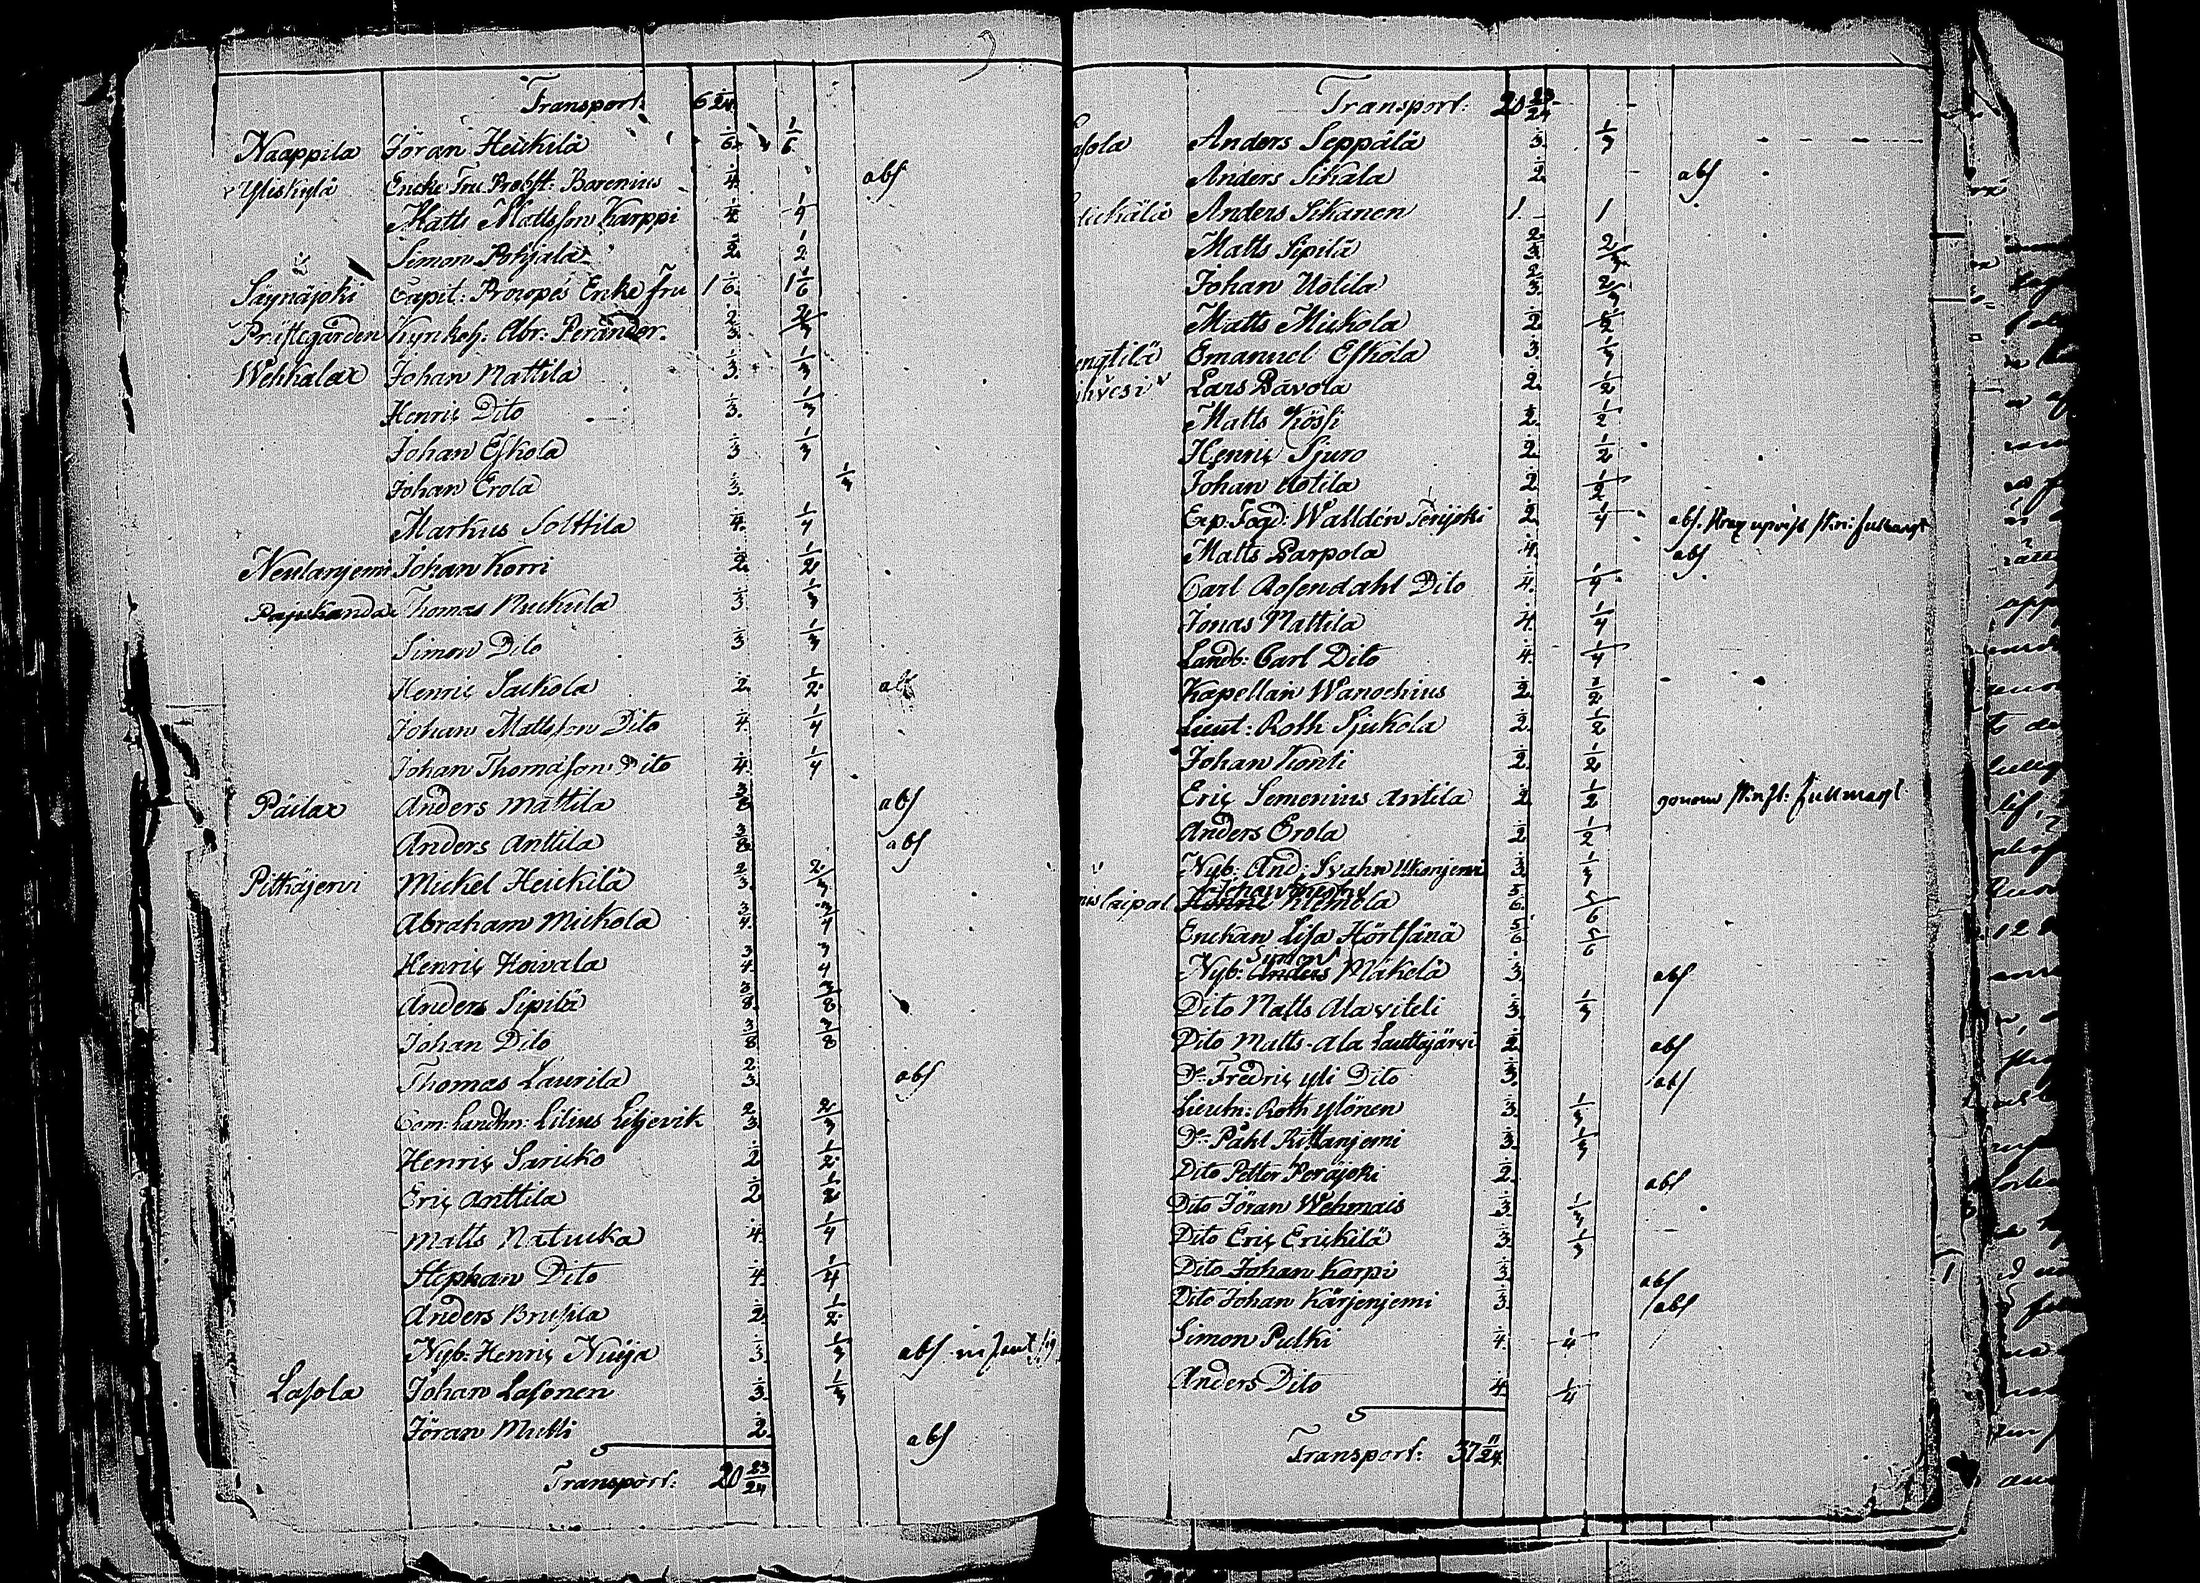 Transport: 6 1/24
Naappila Jöran Heickilä 1/6 1/6
Yliskylä Encke Fru Probst: Borenius 1/4 abs
Matts Mattsson Karppi 1/4 1/4
Simon Pohjala 1/2 1/2
Säynäjoki Capit: Enke fru 1 1/6 1 1/6
Prästegården Kyrkoh: Abr: Perander. 2/3 2/3
Wehkalax Johan Mattila 1/3 1/3
Henric Dito 1/3 1/3
Johan Eskola 1/3 1/3
Johan Erola 1/3 1/3
Markus Solttila 1/4 1/4
Neulanjemi Johan Korri 1/2 1/2
Pajukanda Thomas Muckula 1/3 1/3
Simon Dito 1/3 1/3
Henric Sackola 1/2 1/2 abs
Johan Mattsson Dito 1/4 1/4
Johan Thomasson Dito 1/4 1/4
Päilax Anders Mattila 3/8 abs
Anders Anttila 3/8 abs
Pitkäjervi Mickel Heickilä 2/3 2/3
Abraham Mickola 3/4 3/4
Henric Hoivala 3/4 3/4
Anders Sipilä 3/8 3/8
Johan Dito 3/8 3/8
Thomas Laurila 2/3 abs
Com: Landtm: Lilius Liljevik 2/3 2/3
Henric Saricko 1/2 1/2
Eric Anttila 1/2 1/2
Matts Natucka 1/4 1/4
Stephan Dito 1/4 1/4
Anders Brusila 1/2 1/2
Nyb: Henric Nuija 1/3 1/3 abs
Lasola Johan Lasonen 1/3 1/3
Jöran Mutti 1/2 abs
Transport: 20 23/24
Transport: 20 23/24
asola Anders Seppälä 1/3 1/3
Anders Sikala 1/2 abs
Anders Sikanen 1 1
Matts Sipilä 2/3 2/3
Johan Uotila 2/3 2/3
Matts Mickola 1/2 1/2
engtilä Emanuel Eskola 1/3 1/3
ihvesi Lars Pavola 1/2 1/2
Matts Kössi 1/2 1/2
Henric Sjuro 1/2 1/2
Johan Uotila 1/2 1/2
Exp: Fogd: Walldén Terijoki 1/2 1/4 abs.
Matts Parpola 1/4 abs
Carl Rosendahl Dito 1/4 1/4
Jonas Mattila 1/4 1/4
Landb: Carl Dito 1/4 1/4
Kapellan Wanochius 1/2 1/2
Lieut: Roth Sjukola 1/2 1/2
Johan Kontti 1/2 1/2
Eric Semenius Antila 1/2 1/2 genom skrift: fullmagt
Anders Erola 1/2 1/2
Nyb: And: Svahn Ukonjemi 1/3 1/3
Klemola 5/6 5/6
Enckan Lisa Hörtsänä 5/6 5/6
Simon
Nyb: Anders Mäkelä 1/3 abs
Dito Matts Alaviteli 1/3 1/3
Dito Matts Ala Lauttajärvi 1/2 abs
Do Fredric Yli Dito 1/3 abs
Lieutn: Roth Ylönen 1/3 1/3
Do Påhl Riittanjemi 1/3 1/3
Dito Petter Peräjoki 1/2 abs
Dito Jöran Wehmais 1/3 1/3
Dito Eric Erickilä 1/3 1/3
Dito Johan Korpi 1/3 abs
Dito Johan Kärjenjemi 1/3 abs
Simon Pulki 1/4 1/4
Anders Dito 1/4 1/4
Transport: 37 11/24